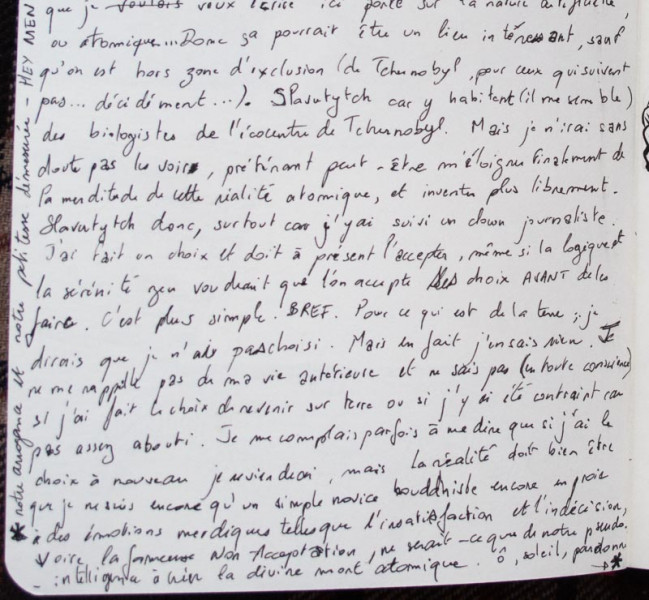 que je voulais veux l'écrire ici porte sur la nature artificielle,
ou atomique... Donc ça pourrait être un lieu intéressant, sauf
qu'on est hors zone d'exclusion (de Tchernobyl, pour ceux qui suivent
pas... décidément...). Slavutytch car y habitent (il me semble)
des biologistes de l'écocentre de Tchernobyl. Mais je n'irai sans
doute pas les voir, préférant peut-être m'éloigner finalement de
la merditude de cette réalité atomique, et inventer plus librement.
Slavutytch donc, surtout car j'y ai suivi un clown journaliste.
J'ai fait un choix et doit à présent l'accepter, même si la logique et
la sérénité zen voudraient que l'on accepte ses choix AVANT de les
faire. C'est plus simple. BREF. Pour ce qui est de la terre, je
dirais que je n'ai pas choisi. Mais en fait j'en sais rien. Je
ne me rappelle pas de ma vie antérieure et ne sais pas (en toute conscience)
si j'ai fait le choix de revenir sur terre ou si j'y ai été contraint car
pas assez abouti. Je me complais parfois à me dire que si j'ai le
choix à nouveau je reviendrai, mais la réalité doit bien être
que je ne suis encore qu'un simple novice bouddhiste encore en proie
à des émotions merdiques telles que l'insatisfaction et l'indécision,
voire la fameuse Non Acceptation, ne serait-ce que de notre pseudo-
intelligence à créer la divine mort atomique. ô, soleil, pardonne
→*
* notre arrogance et notre petitesse démesurée - HEY MEN